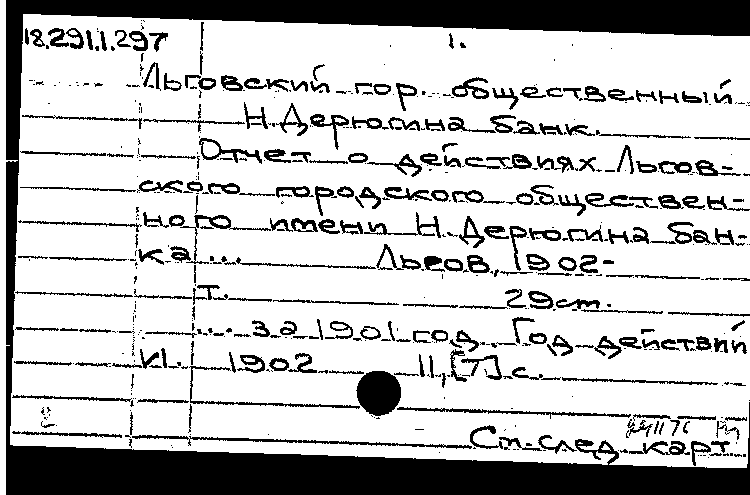 18.291.1.297 1.
Льговский гор. общественный
Н.Дерюгина банк.
Отчет о действиях Льгов-
ского городского обществен-
ного имени Н.Дерюгина бан-
ка ... Льгов, 1902-
т. 29 cm.
... за 1901 год. Год действий
41. 1902 11,[7] с.
См.след.карт